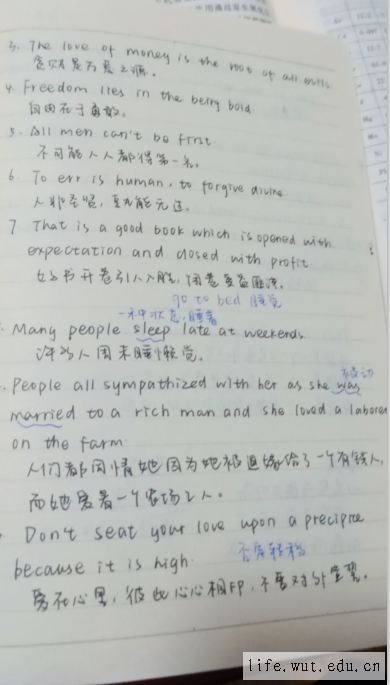 3. The love of money is the root of all evils
贪财是万恶之源。
4. Freedom lies in the berry bold
自由在于勇敢。
5. All men can't be first
不可能人人都得第一名。
6 To err is human, to forgive divine
人非圣贤,孰能无过。
7 That is a good book which is opened with
expectation and closed with profit
好书开卷引人入胜,闭卷受益匪浅。
go to bed 睡觉
一种状态,睡着
Many people sleep late at weekends
许多人周末睡懒觉。
被动
People all sympathized with her as she was
married to a rich man and she loved a laborer
on the farm
人们都同情她因为她被逼嫁给了一个有钱人,
而她爱着一个农场工人。
Don't seat your love upon a precipice
because it is high.
爱在心里,彼此心心相印,不要对外
life.wut.edu.cn